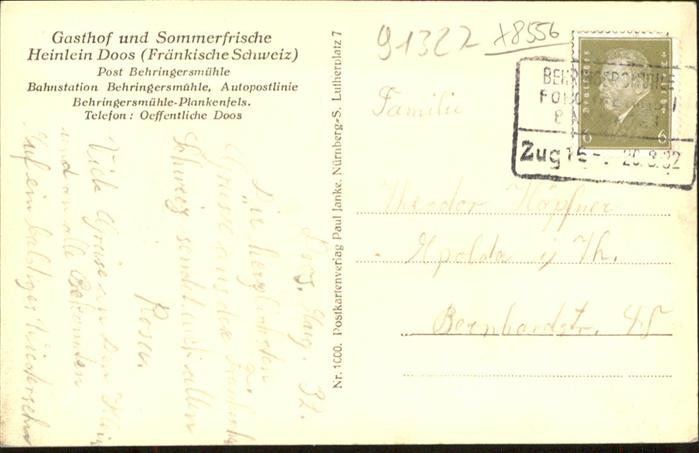 Gasthof und Sommerfrische
Heinlein Doos (Fränkische Schweiz)
Post Behringersmühle
Bahnstation Behringersmühle, Autopostlinie
Behringersmühle-Plankenfels.
Telefon: Oeffentliche Doos
Doos. Aug. 32.
Die herzlichsten
Grüsse aus der
Schweiz sendet euch allen
Rosa.
Viele Grüsse an
und an alle Bekannten
Auf ein baldiges Wiedersehn
Nr. 1600. Postkartenverlag Paul Janke, Nürnberg-S. Lutherplatz 7
91322
x8556
6 6
BEHRINGERSMÜHLE
Zug 20.8.32
Familie
Theodor Höpfner
Apolda i/Th.
Bernhardstr. 45